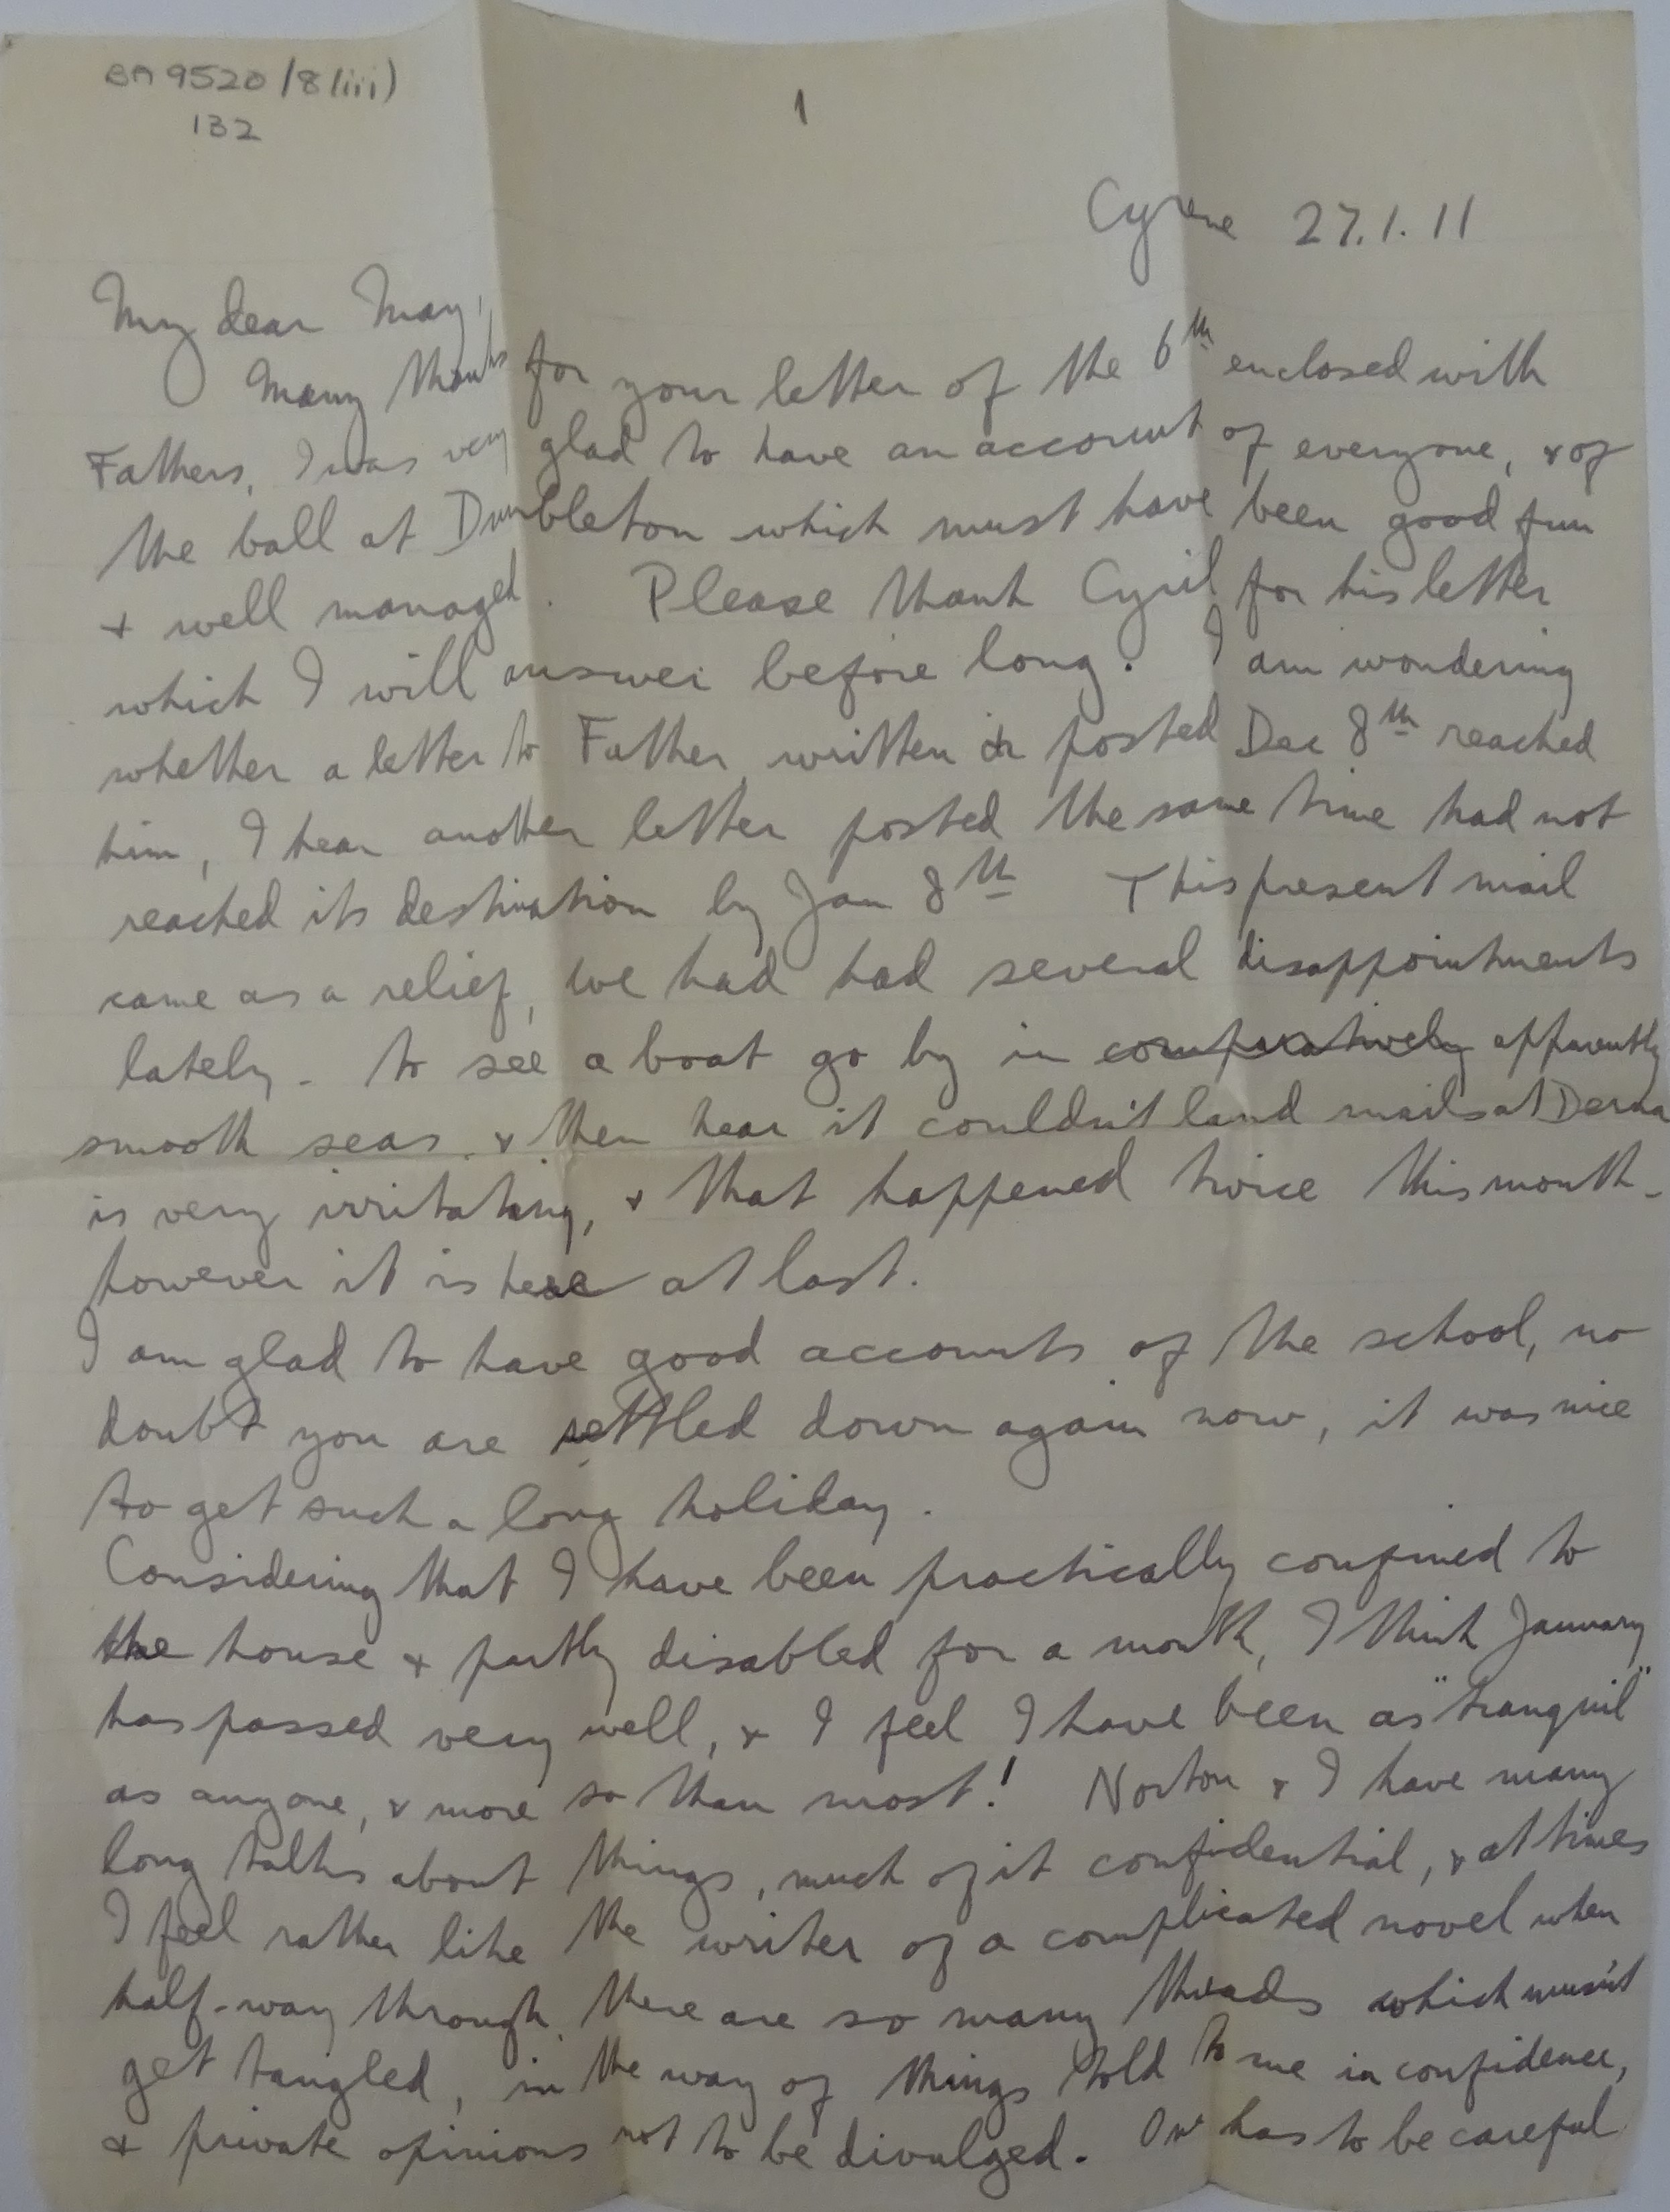 BA 9520/8(iii)
132
1
Cyrene 27.1.11
My dear May,
Many thanks for your letter of the 6th enclosed with
Fathers, I was very glad to have an account of everyone, & of
the ball at Dumbleton which must have been good fun
& well managed. Please thank Cyril for his letter
which I will answer before long. I am wondering
whether a letter to Father, written & posted Dec 8th reached
him, I hear another letter posted the same time had not
reached its destination by Jan 8th This present mail
came as a relief, we had had several disappointments
lately. To see a boat go by in comparatively apparently
smooth seas, & then hear it couldn't land mails at Derna
is very irritating, & that happened twice this month -
however it is here at last.
I am glad to have good accounts of the school, no
doubt you are settled down again now, it was nice
to get such a long holiday.
Considering that I have been practically confined to
the house & partly disabled for a month, I think January
has passed very well, & I feel I have been as "tranquil"
as anyone, & more so than most! Norton & I have many
long talks about things, much of it confidential, & at times
I feel rather like the writer of a complicated novel when
half-way through, there are so many threads which musn't
get tangled, in the way of things told to me in confidence,
& private opinions not to be divulged. One has to be careful